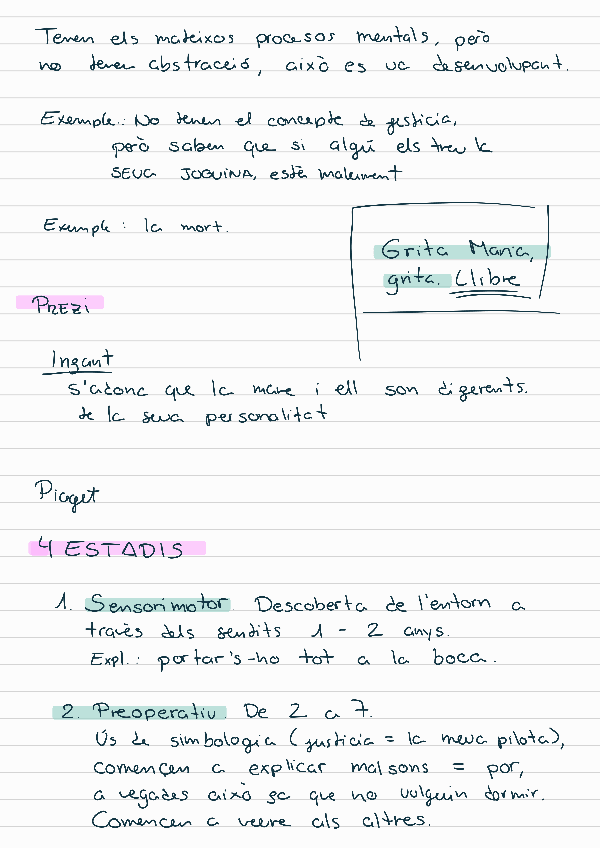 Tenen els mateixos procesos mentals, però
no tenen abstracció, això es va desenvolupant.
Exemple.: No tenen el concepte de justicia,
però saben que si algú els treu la
SEUA JOGUINA, està malament
Exemple : la mort.
Grita Maria,
grita. Llibre
PREZI
Infant
s'adona que la mare i ell son diferents.
de la seua personalitat
Piaget
4 ESTADIS
1. Sensorimotor. Descoberta de l'entorn a
través dels sentits 1 - 2 anys.
Expl.: portar's-ho tot a la boca.
2. Preoperatiu. De 2 a 7.
Ús de simbologia (justicia = la meua pilota),
començen a explicar malsons = por,
a vegades això fa que no vulguin dormir.
Comencen a veure als altres.